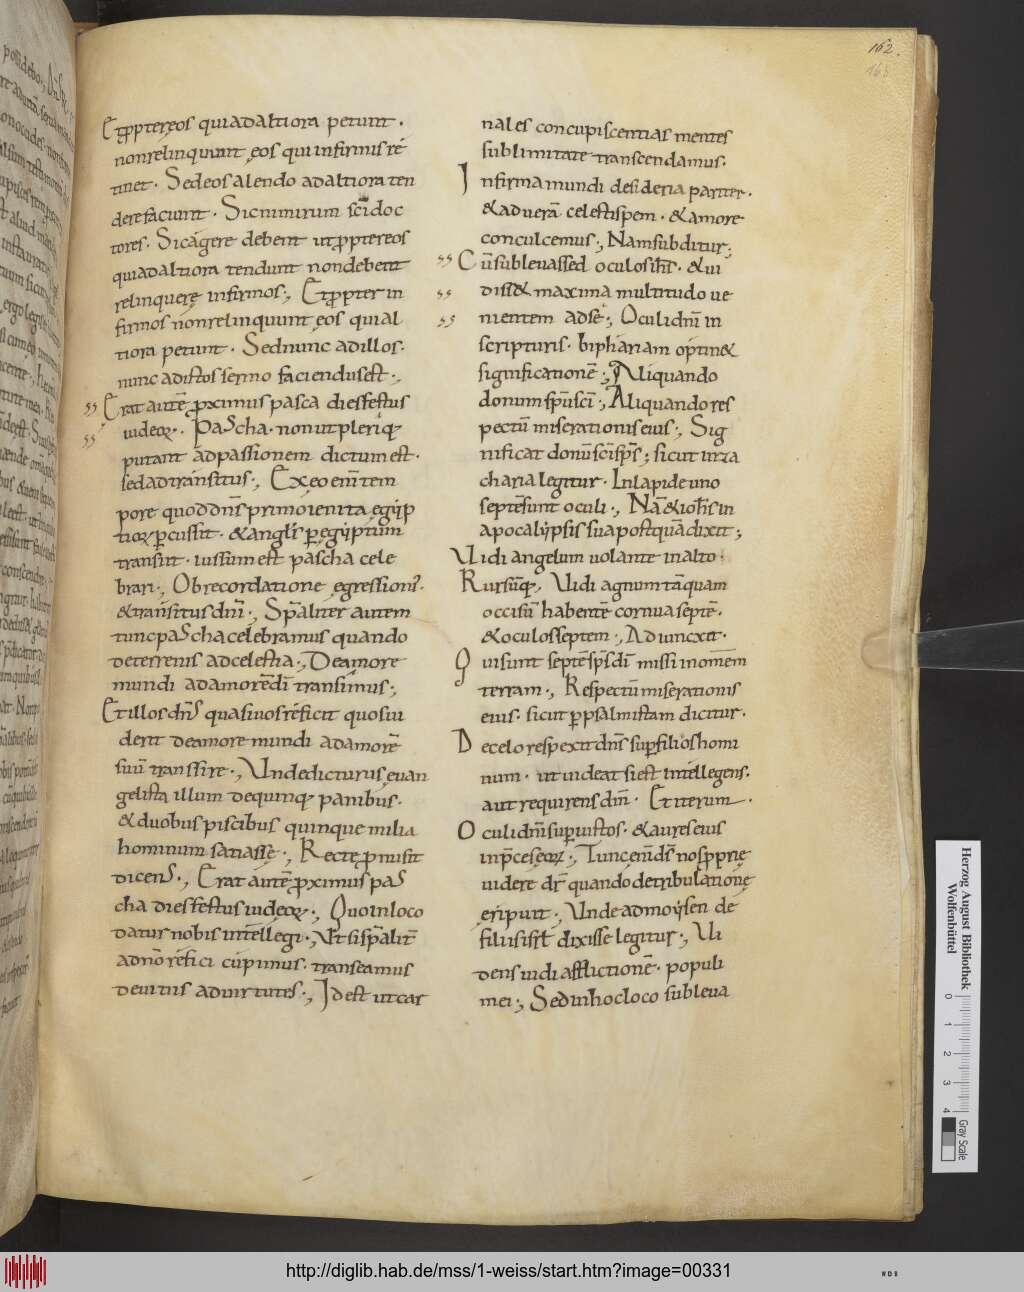 162.
Et ppter eos qui ad altiora petunt.
non relinquunt eos qui infirmis re
tinet. Sed eos alendo ad altiora ten
dere faciunt. Sic nimirum sci doc
tores. Sic agere debent ut ppter eos
qui ad altiora tendunt non debent
relinquere infirmos., Et ppter in
firmos non relinquunt eos qui al
tiora petunt. Sed nunc ad illos.
nunc ad istos sermo faciendus est.,
Erat autē proximus pasca dies festus
iudeoꝝ. Pascha. non ut pleriq
putant ad passionem dictum est.
sed ad transitus., Ex eo em̄ tem
pore quod dn̄s primogenita egyp
tioꝝ pcussit. & angl̄s p egyptum
transiit. iussum est pascha cele
brari., Ob recordatione egressionis.
& transitus dn̄i., Sp̄aliter autem
tunc pascha celebramus quando
de terrenis ad celestia., De amore
mundi ad amorē dī transimus.,
Et illos dn̄s quasi uos reficit quos ui
derit de amore mundi ad amorē
suū transire., Unde dicturus euan
gelista illum de quinq panibus.
& duobus piscibus quinque milia
hominum satiasse., Recte pmisit
dicens., Erat autē proximus pas
cha dies festus iudeoꝝ., Quo in loco
datur nobis intellegi., Ut si sp̄alit̄
ad nō refici cupimus. transeamus
de uitiis ad uirtutes., Id est ut car
nales concupiscentias mentes
sublimitate transcendamus.
Infirma mundi desideria pariter.
& ad uerā celestispem. & amore
conculcemus., Nam subditur;
Cū subleuass& oculos ih̄s. & ui
diss& maxima multitudo ue
nientem ad se., Oculi dn̄i in
scripturis. biphariam optin&
significationē., Aliquando
donum sp̄u sci., Aliquando res
pectū miserationis eius., Sig
nificat donū sci sp̄s; sicut in za
charia legitur. In lapide uno
septē sunt oculi., Nā & ioh̄s in
apocalypsis sua postquā dixit;
Uidi angelum uolante in alto.
Rursūq. Uidi agnum tāquam
occisū habentē cornua septē.
& oculos septem., Adiuncxit.
Qui sunt septē sp̄s dī missi in omnem
terram., Respectū miserationis
eius. sicut p psalmistam dicitur.
De celo respexit dn̄s sup filios homi
num. ut uideat si est intellegens.
aut requirens dm̄. Et iterum.
Oculi dn̄i sup iustos. & aures eius
in p̄ces eoꝝ., Tunc em̄ ds̄ nos pprie
uidere dr̄ quando de tribulatione
eripuit., Unde ad moysen de
filiis isrl̄ dixisse legitur., Ui
dens uidi afflictionē. populi
mei., Sed in hoc loco subleua
Herzog August Bibliothek
Wolfenbüttel
0 1 2 3 4
Gray Scale
http://diglib.hab.de/mss/1-weiss/start.htm?image=00331